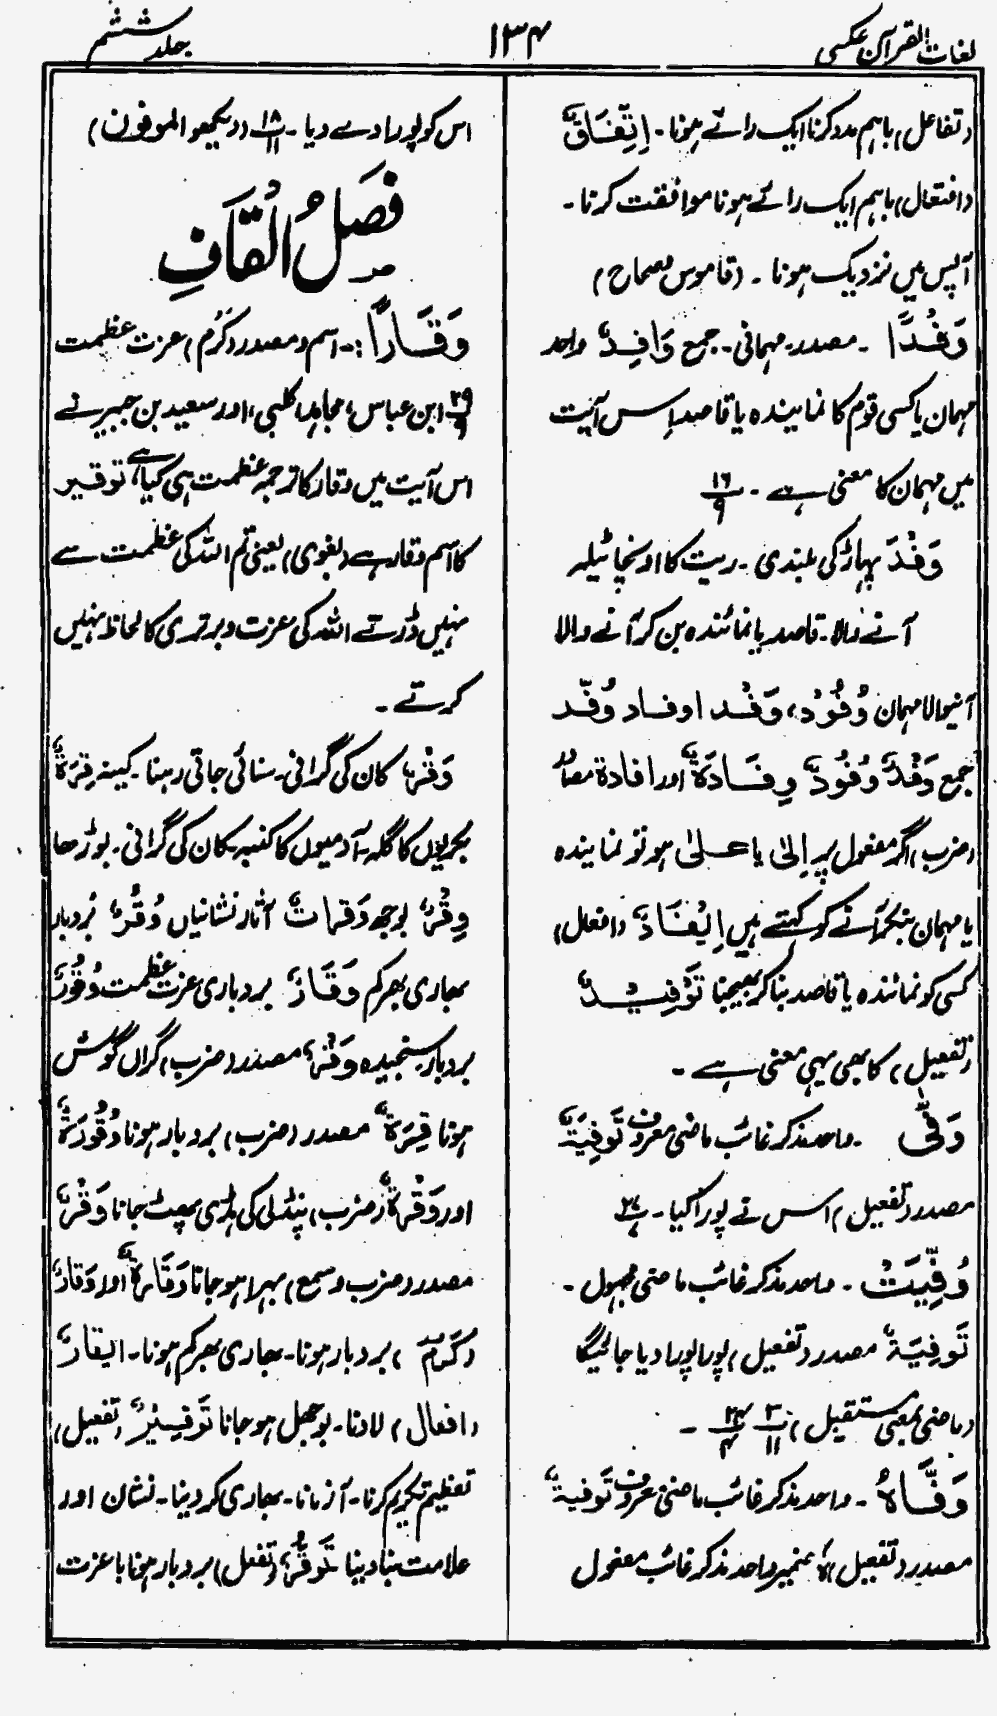 لغات القرآن عکسی
۱۳۴
جلد ششم
(تفاعل) باہم مدد کرنا ایک رائے ہونا۔ اِتِّفَاقٌ
(افتعال) باہم ایک رائے ہونا موافقت کرنا۔
آپس میں نزدیک ہونا۔ (قاموس مصباح)
وَفْدًا ۔ مصدر۔ مہمانی۔ جمع وَافِدٌ واحد
مہمان یا کسی قوم کا نمایندہ یا قاصد اِس آیت
میں مہمان کا معنی ہے۔ ۱۶/۹
وَفْدَ پہاڑ کی بلندی۔ ریت کا اونچا ٹیلہ
آنے والا۔ قاصد یا نمائندہ بن کر آنے والا
آنیوالا مہمان وُفُوْد، وَفْد اوفاد وُفَّد
جمع وَفْدٌ وُفُوْدٌ وِفَادَةٌ اور افادة مصادر
(ضرب) اگر مفعول پر اِلیٰ یا علیٰ ہو تو نمایندہ
یا مہمان بنکر آنے کو کہتے ہیں اِیْفَادٌ (افعال)
کسی کو نمائندہ یا قاصد بنا کر بھیجنا تَوْفِیْدٌ
(تفعیل) کا بھی یہی معنی ہے۔
وَفّٰی ۔ واحد مذکر غائب ماضی معروف تَوْفِیَةٌ
مصدر (تفعیل) اس نے پورا کیا۔
وُفِّیَتْ ۔ واحد مذکر غائب ماضی مجہول۔
تَوْفِیَةٌ مصدر (تفعیل) پورا پورا دیا جائیگا
(ماضی بمعنی مستقبل) ۳/۱۱ ۲۴/۴ ۔
وَفّٰاهُ ۔ واحد مذکر غائب ماضی معروف تَوْفِیةٌ
مصدر (تفعیل) هُ ضمیر واحد مذکر غائب مفعول
اس کو پورا دے دیا۔ ۱۸/۱۱ (دیکھو الموفون)
فَصْلُ الْقَافِ
وَقَارًا :۔ اسم و مصدر (کَرُمَ) عزت عظمت
۲۹/۹ ابن عباس، مجاہد، کلبی، اور سعید بن جبیر نے
اس آیت میں وقار کا ترجمہ عظمت ہی کیا ہے، توقیر
کا اسم وقار ہے (بغوی) یعنی تم اللہ کی عظمت سے
نہیں ڈرتے اللہ کی عزت و برتری کا لحاظ نہیں
کرتے۔
وَقْرٌ کان کی گرانی۔ سنائی جاتی رہنا۔ کینہ قِرَةٌ
بکریوں کا گلہ۔ آدمیوں کا کنبہ۔ کان کی گرانی۔ بوڑھا
وِقْرٌ بوجھ وَقرات آثار نشانیاں وُقُرٌ بردبار
بھاری بھرکم وَقَارٌ بردباری عزت عظمت وُقُوْرٌ
بردبار سنجیدہ وَقْرٌ مصدر (ضرب) گراں گوش
ہونا قِرَةٌ مصدر (ضرب) بردبار ہونا وُقُوْرَةٌ
اور وَقْرَةٌ (ضرب) پنڈلی کی ہڈی پھٹ جانا وَقْرٌ
مصدر (ضرب و سمع) بہرا ہو جانا وَقَارَةٌ اور وَقَارٌ
(کَرُمَ) بردبار ہونا۔ بھاری بھرکم ہونا۔ ایقارٌ
(افعال) لادنا۔ بوجھل ہو جانا تَوْقِیْرٌ (تفعیل)
تعظیم تکریم کرنا۔ آزمانا۔ بھاری کر دینا۔ نشان اور
علامت بنا دینا تَوَقُّرٌ (تفعل) بردبار ہونا باعزت